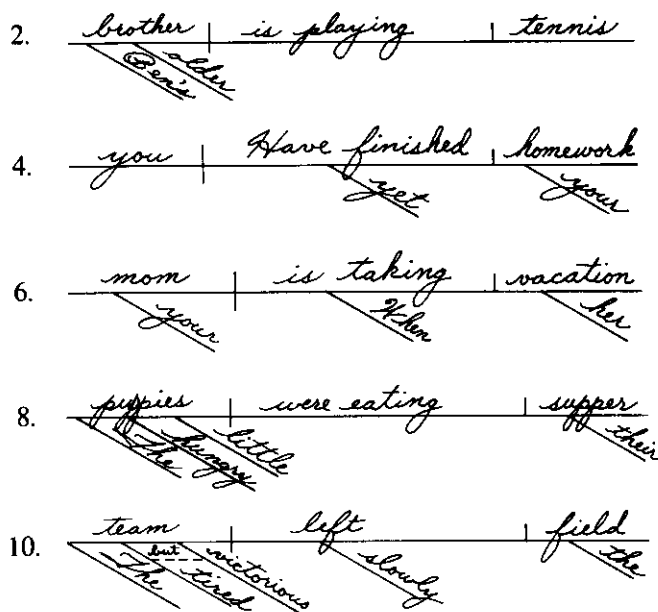 2. brother is playing tennis
Ben's older
4. you Have finished homework
yet your
6. mom is taking vacation
your When her
8. puppies were eating supper
The hungry little their
10. team left field
The but tired victorious slowly the